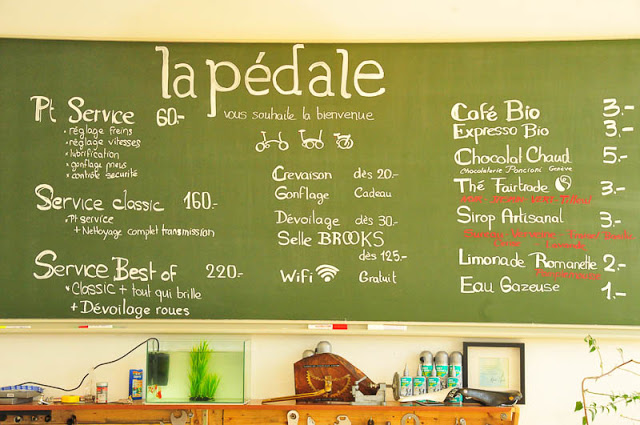 la pédale
vous souhaite la bienvenue
Pt Service 60.-
• réglage freins
• réglage vitesses
• lubrification
• gonflage pneus
• contrôle sécurité
Service classic 160.-
• Pt service
+ Nettoyage complet transmission
Service Best of 220.-
• CLASSIC + tout qui brille
+ Dévoilage roues
Crevaison dès 20.-
Gonflage Cadeau
Dévoilage dès 30.-
Selle BROOKS
dès 125.-
WiFi Gratuit
Café Bio 3.-
Expresso Bio 3.-
Chocolat Chaud 5.-
Chocolaterie Poncioni Genève
Thé Fairtrade 3.-
Sirop Artisanal 3.-
Limonade Romanette 2.-
Eau Gazeuse 1.-